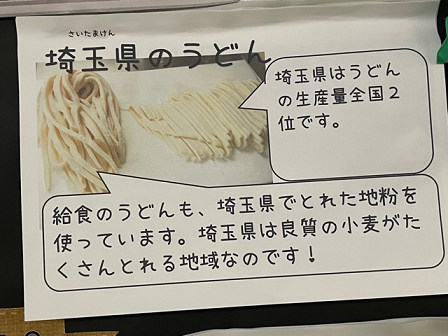 さいたまけん
埼玉県のうどん
埼玉県はうどん
の生産量全国２
位です。
給食のうどんも、埼玉県でとれた地粉を
使っています。埼玉県は良質の小麦がた
くさんとれる地域なのです！